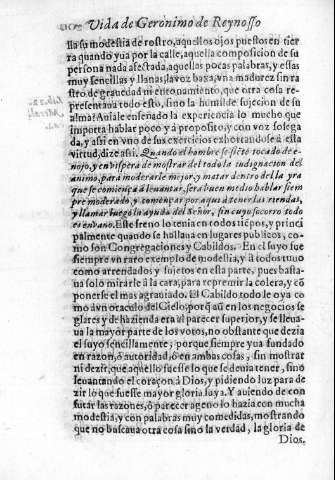 Vida de Geronimo de Reynosso
lla su modestia de rostro, aquellos ojos puestos en tier
ra quando yua por la calle, aquella composicion de su
persona nada afectada, aquellas pocas palabras, y essas
muy senzillas y llanas, la voz baxa, vna madurez sin ra
stro de grauedad ni entonamiento, que otra cosa re-
presentaua todo esto, sino la humilde sujecion de su
alma? Auiale enseñado la experiencia lo mucho que
importa hablar poco y a proposito, y con voz sossega
da, y assi en vno de sus exercicios exhortandose a esta
virtud, dize assi. Quando el hombre se siẽte tocado de e-
nojo, y en vispera de mostrar del todo la indignacion del
animo, para moderarle mejor, y matar dentro del la yra
que se comiença a leuantar, sera buen medio hablar siem
pre moderado, y començar por aqui a tener las riendas,
y llamar luego la ayuda del Señor, sin cuyo socorro todo
es en vano. Este freno lo tenia en todos tiẽpos, y princi
palmente quando se hallaua en lugares publicos, co-
mo son Congregaciones y Cabildos. En el suyo fue
siempre vn raro exemplo de modestia, y a todos tuuo
como arrendados y sujetos en esta parte, pues basta-
ua solo mirarle a la cara, para repremir la colera, y cõ
ponerse el mas agrauiado. El Cabildo todo le oya co
mo a vn oraculo del Cielo, porq̃ aũ en los negocios se
glares y de hazienda era al parecer superior, y se lleua
ua la mayor parte de los votos, no obstante que dezia
el suyo sencillamente, porque siempre yua fundado
en razon, o autoridad, ò en ambas cosas, sin mostrar
ni dezir, que aquello fuesse lo que se deuia tener, sino
leuantando el coraçon à Dios, y pidiendo luz para de
zir lo que fuesse mayor gloria suya. Y auiendo de con
futar las razones, ò parecer ageno lo hazia con mucha
modestia, y con palabras muy comedidas, mostrando
que no buscaua otra cosa sino la verdad, la gloria de
Dios,